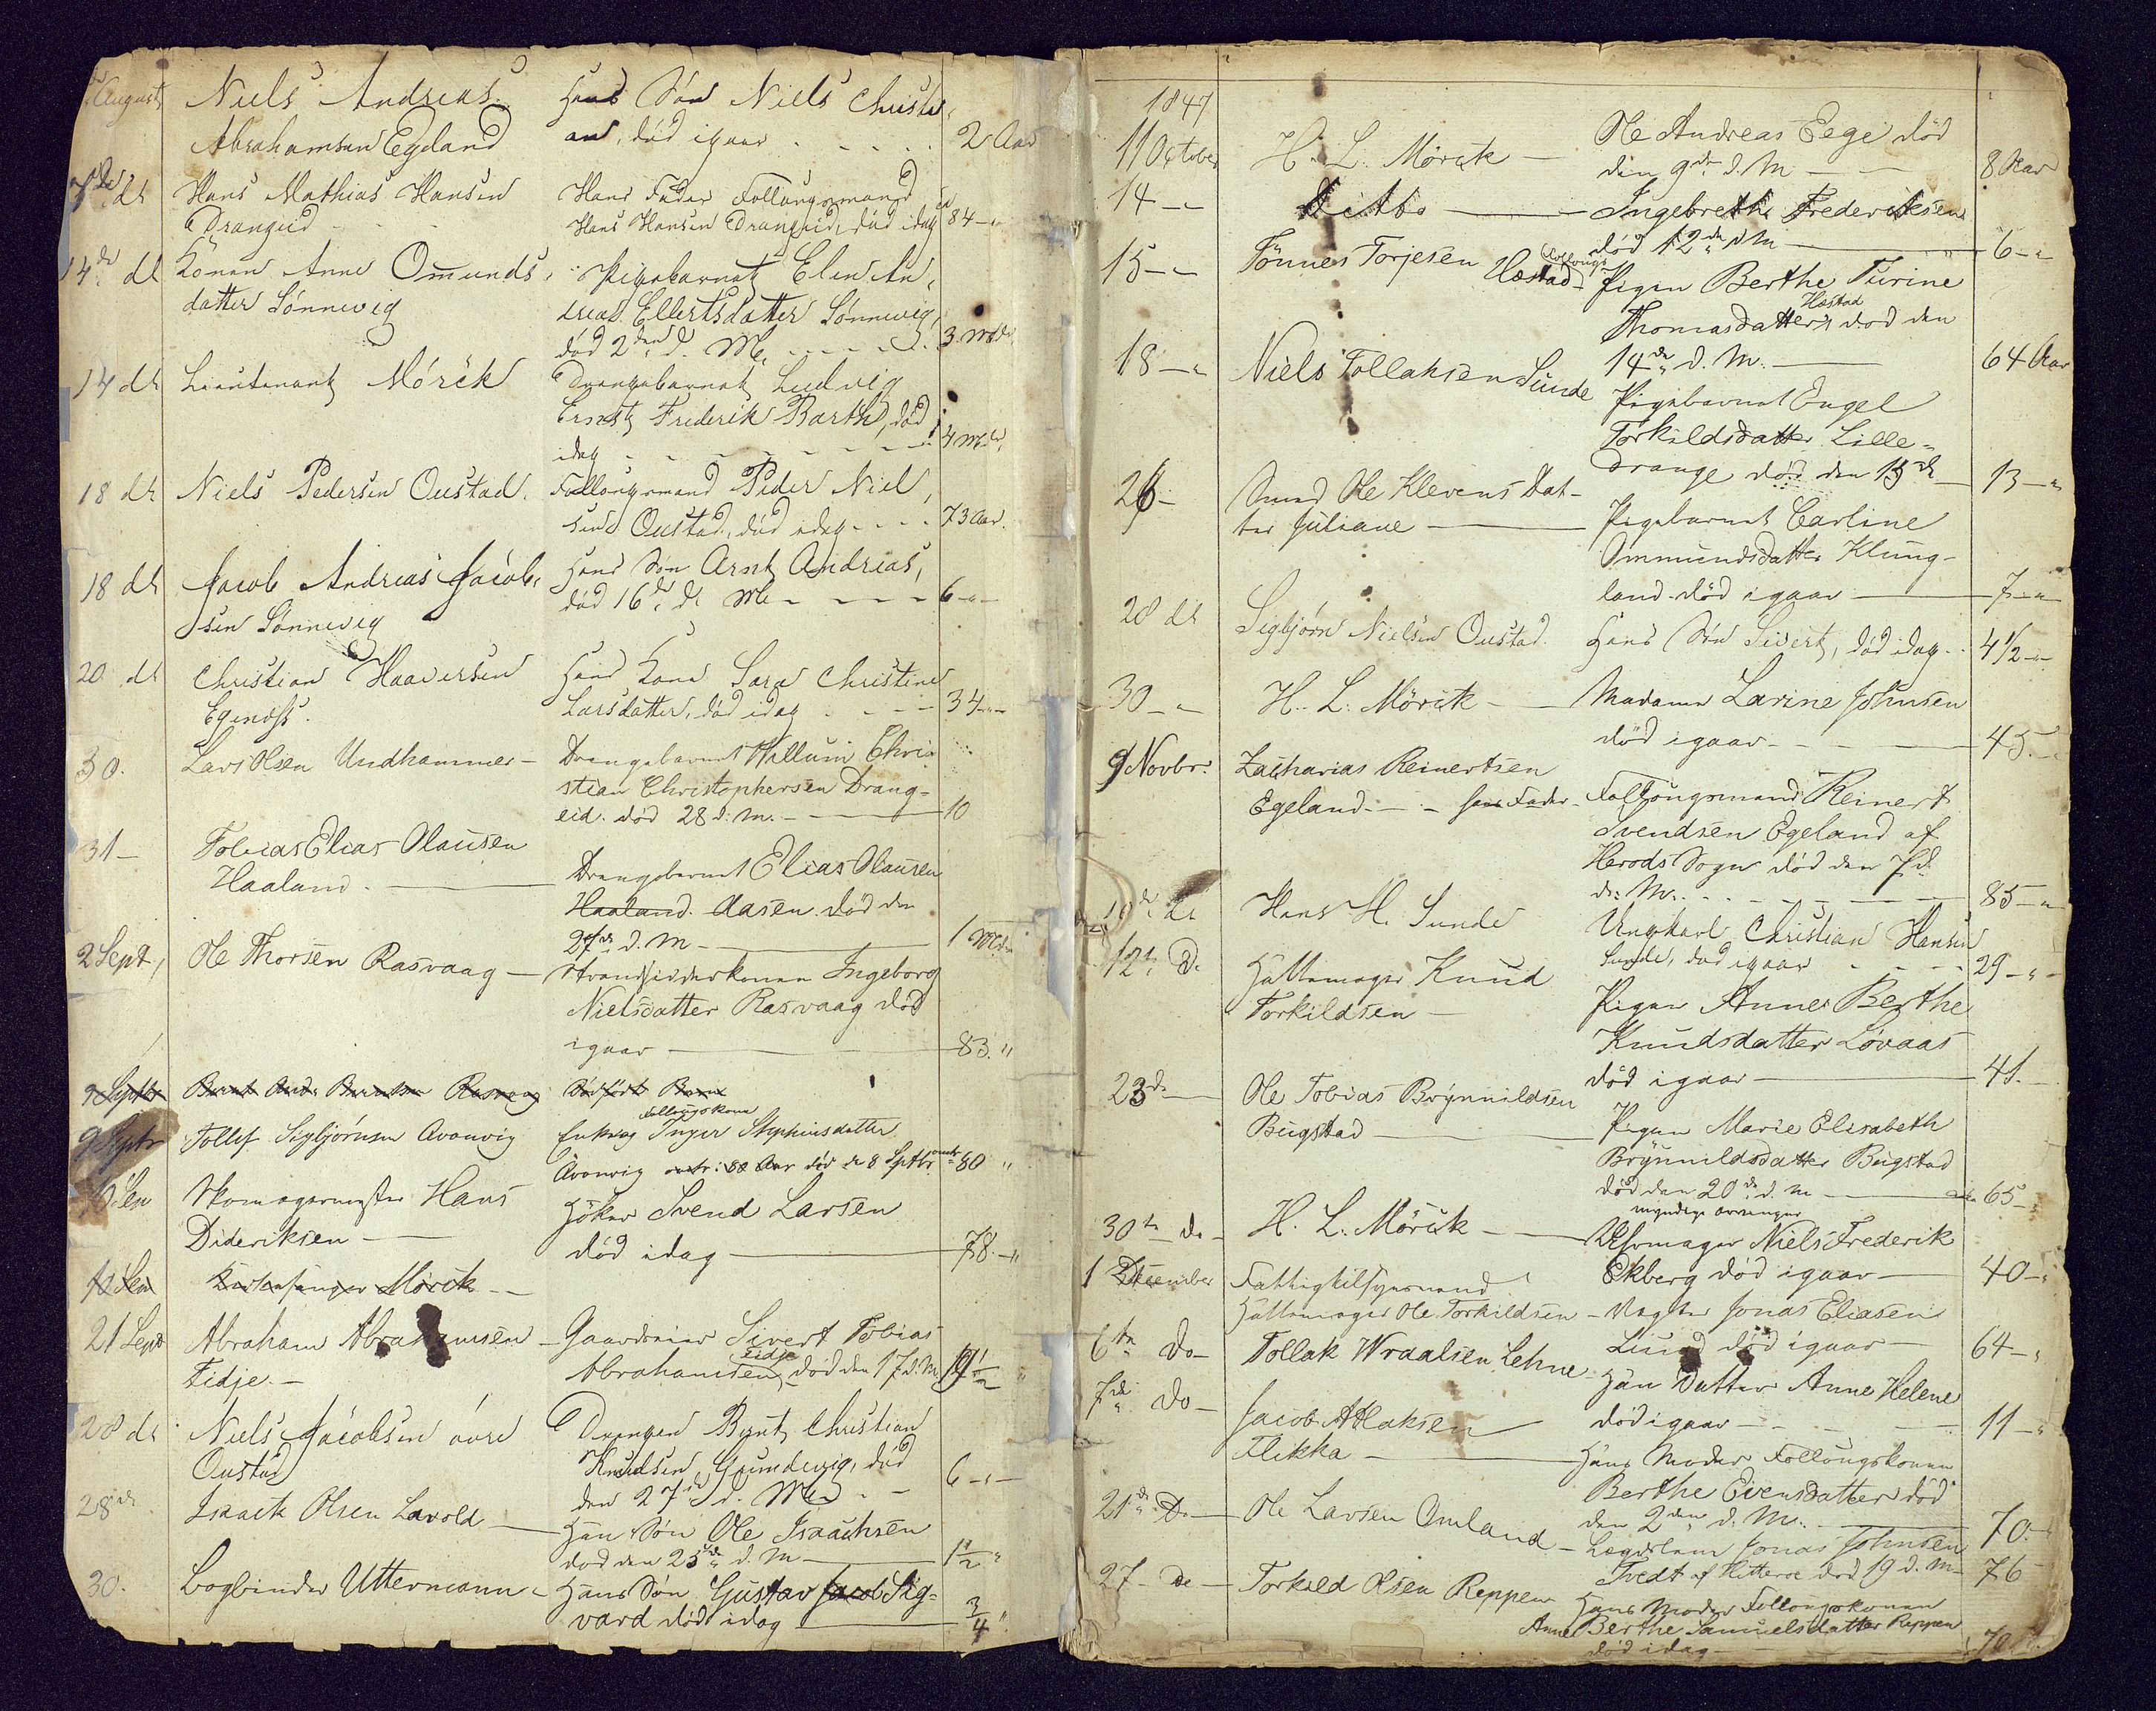 August Niels Andreas Hans Søn Niels Christi
Abrahamsen Egeland an, død igaar 2 Aar
7de ds Hans Mathias Hansen Hans Fader Follaugsmand
Drangeid Hans Hansen Drangeid, død idag 84
14de ds Konen Anne Omunds Pigebarnet Elen An
datter Sønnevig dreas Ellertsdatter Sønnevig
død 2den d. M. 3 Mdr
14 ds Lieutenant Mørck Drengebarnet Ludvig
Ernst Frederik Barth, død
idag 4 Mdr
18 ds Niels Pedersen Oustad. Follaugsmand Peder Niel
sen Oustad, død idag 73 Aar.
18 ds Jacob Andreas Jacob Hans Søn Arnt Andreas,
sen Sønnevig død 16de ds M 6
20 ds Christian Haaversen Hans Kone Sara Christine
Egenæss. Larsdatter, død idag 34
30. Lars Olsen Undhammer Drengebarnet Wallum Chri
stian Christophersen Drang-
eid. død 28 d. M. 10
31 Tobias Elias Olausen
Haaland. Drengebarnet Elias Olausen
Haaland. Aasen død den
27de d. M 1 Md
2 Sept, Ole Thorsen Rasvaag Strandsidderkonen Ingeborg
Nielsdatter Rasvaag død
igaar 83 "
9 Septbr Bernt And. Berntsen Rasvaag Dødfødt Barn
9 Septr Tollef Sigbjørnsen Avonvig Enke og Follaugskone Inger Stephensdatter
Avonvig omtr: 80 Aar død de 8 Septbr omtr 80 "
10 Sen Skomagermester Hans Høker Svend Larsen
Dideriksen død idag 78 "
12 Sen Kirkesanger Mørck
21 Sept Abraham Abrahamsen Gaardmand Sivert Tobias
Eidje. Abrahamsen Eidje, død den 17 d. M 19½
28 ds Niels Jacobsen øvre Drengen Bernt Christian
Oustad Knudsen Grundevig, død
den 27de d. M. 6
28de Isaack Olsen Lavold Hans Søn Ole Isaachsen
død den 25de d. M 1½ "
30. Bogbinder Uttermann Hans Søn Gustav Jacob Sig-
vard død idag ¾ "
1847
11 October H. L. Mörck Ole Andreas Eege død
den 9de d. M 8 Aar
14 Ditto Ingebrethe Frederiksen
død 12de d M 6
15 Tönnes Torjesen Hæstad Follaugs
Pigen Berthe Turine
Thomasdatter Hæstad død den
14de d. M. 64 Aar
18 Niels Tollaksen Sunde Pigebarnet Engel
Torkildsdatter Lille-
Drange død den 15de 13
26 Smed Ole Klevens Dat-
ter Juliane Pigebarnet Carline
Ommundsdatter Klung-
land død igaar 7
28 ds Sigbjørn Nielsen Oustad. Hans Søn Sivert, død idag 4½
30 H. L. Mörck Madame Larine Johnsen
død igaar 45.
9 Novbr: Zacharias Reinertsen
Egeland. hans Fader Follaugsmand Reinert
Svendsen Egeland af
Herods Sogn død den 7de
ds: M. 85
10de ds Hans H. Sunde Ungkarl Christian Hansen
Sunde, død igaar 29
12te D. Hattemager Knud
Torkildsen Pigen Anne Berthe
Knudsdatter Løvaas
død igaar 41.
23de Ole Tobias Brynnildsen
Bugstad Pigen Marie Elisabeth
Brynnildsdatter Bugstad
død den 20de d. M 65
30te do H. L. Mörck
Uhrmager Niels Frederik
Ekberg død igaar 40
1 December Fattigtilsynsmand
Hattemager Ole Torkildsen Vægter Jonas Eliasen
Lund død igaar 64
6te Do Tollak Wraalsen Lehne Hans Datter Anne Helene
død igaar 11
7de Do Jacob A Haksen
Flikka Hans Moder Follaugskonen
Berthe Eivensdatter død
den 2den d. M. 70
21de Do Ole Larsen Omland Lægdslem Jonas Johnsen
Tvedt af Hitterø død 19 d. M 76
27 De Torkild Olsen Reppen Hans Moder Follaugskonen
Anne Berthe Samuelsdatter Reppen
død idag 70